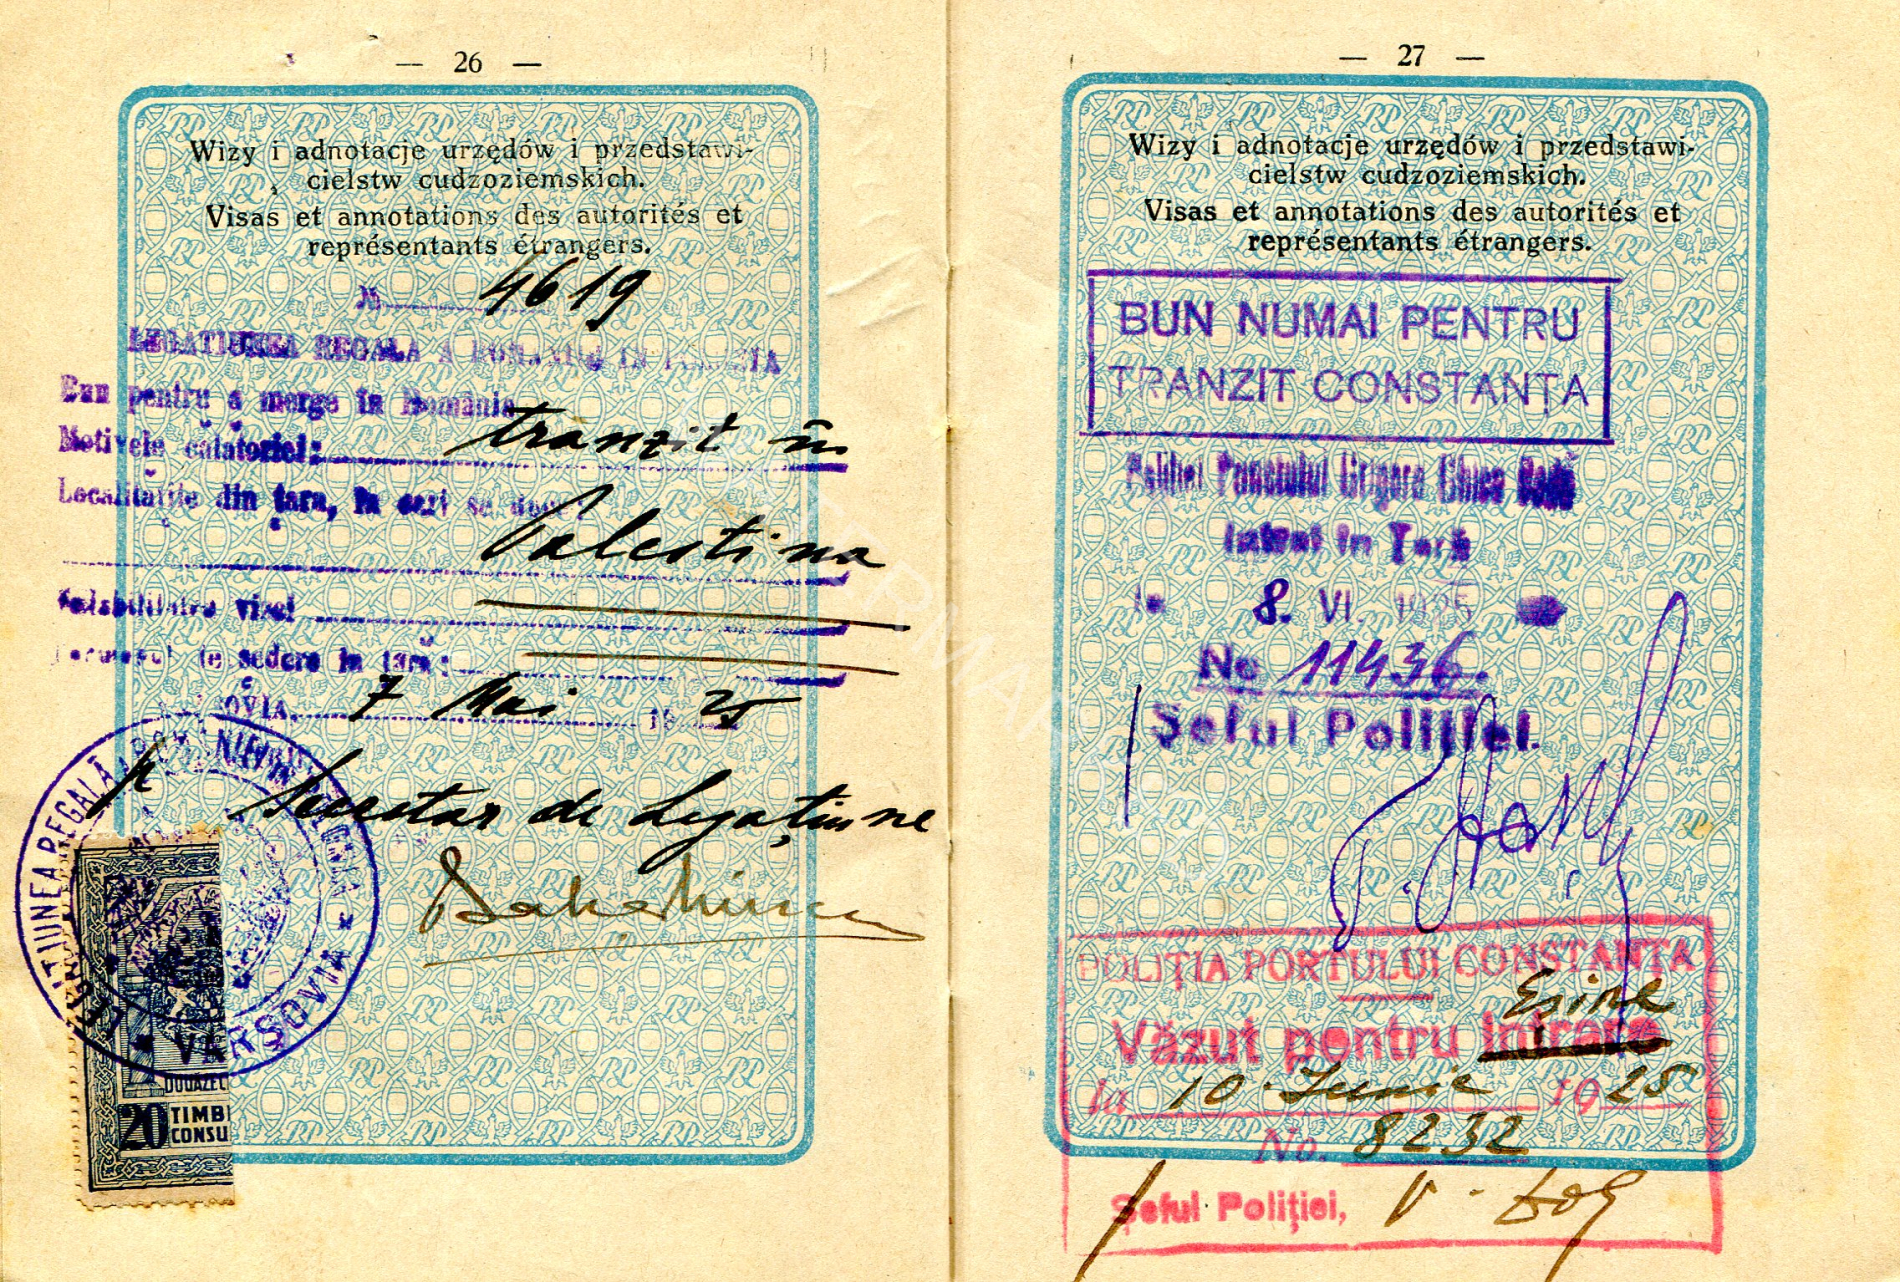 — 26 —
Wizy i adnotacje urzędów i przedstawi-
cielstw cudzoziemskich.
Visas et annotations des autorités et
représentants étrangers.
№ 4619
LEGAȚIUNEA REGALĂ A ROMÂNIEI IN POLONIA
Bun pentru a merge in România
Motivele călătoriei: tranzit în
Localitățile din țara, în cari se duce:
Palestina
Valabilitatea vizei
de ședere in țară:
VARȘOVIA, 7 Mai 1925
p Secretar de Legațiune
LEGAȚIUNEA REGALĂ A ROMÂNIEI
VARȘOVIA
20 TIMB
CONSU
— 27 —
Wizy i adnotacje urzędów i przedstawi-
cielstw cudzoziemskich.
Visas et annotations des autorités et
représentants étrangers.
BUN NUMAI PENTRU
TRANZIT CONSTANȚA
Poliției Punctului Grigore Ghica Vodă
Intrat în Țară
la 8. VI. 1925
No 11436.
Șeful Poliției.
POLIȚIA PORTULUI CONSTANȚA
Eșire
Văzut pentru Intrare
la 10 Iunie 1925
No. 8232
Șeful Poliției,